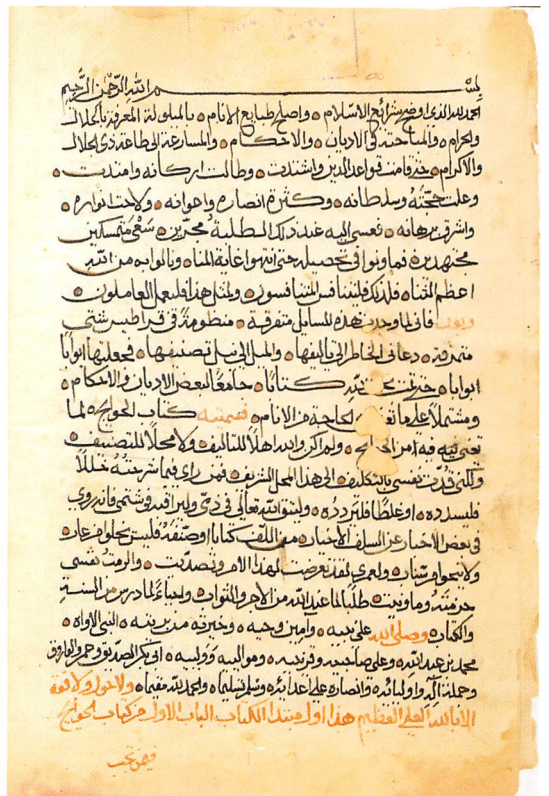 بسم الله الرحمن الرحيم
الحمد لله الذي اوضح شرائع الاسلام واصلح طبايع الانام بالمبلولة المعرفة بالحلال
والحرام والمباحثة في الاديان والاحكام والمسارعة الى طاعة ذي الجلال
والاكرام حتى قامت قواعد الدين واشتدت وطالت اركانه وامتدت
وعلت حجته وسلطانه وكثرة انصاره واعوانه ولاحت انواره
واشرق برهانه تعسى اليه عند ذلك الطلبة مجدين سعى متمسكين
مجتهدين فما ونوا في تحصيله حتى انتهوا غاية المنا ونالوا به من الله
اعظم الثناء فلذلك فليتنافس المتنافسون ولمثل هذا فليعمل العاملون
وبعد فاني لما وجدت هذه المسايل متفرقة منظومة في قراطيس شتى
متمزقة دعاني الخاطر الى تاليفها والميل الى نيل تصنيفها فجعلتها ابوابا
ابوابا حتى تمت كتابا جامعا لبعض الاديان والاحكام
ومشتملا على ما الحاجة من الانام فسميته كتاب الحوايج لما
تعنى فيه من ولم اكن والله اهلا للتاليف ولا محلا للتصنيف
ولكني قدرت نفسي بالتكليف الى هذا المحل الشريف فمن راى فيما شرحته خللا
فليسدده او غلطا فليردده وليتق الله تعالى في ذمي وليراقبه في شتمي فانه روي
في بعض الاخبار عن السلف الاخيار من الف كتابا او صنفه فليس يخلو من عاب
ولا ينجو من شنات ولعمري لقد تعرضت لهذا الامر وتصديت والزمت نفسي
خدمته وما ونيت طلبا لما عند الله من الاجر والثواب واحياء لما درس من السنة
والكتاب وصلى الله على نبيه وامين وحيه وخيرته من بريته النبي الاواه
محمد بن عبد الله وعلى صاحبيه وقرنيه ومواليه ووليه ابي بكر الصديق وعمر والفاروق
وجملة آله واوليائه وانصاره على اعدائه وسلم تسليما والحمد لله ولا حول ولا قوة
الا بالله العلي العظيم هذا اول مبتدا الكتاب الباب الاول من كتاب الحوايج
فيمن تجب